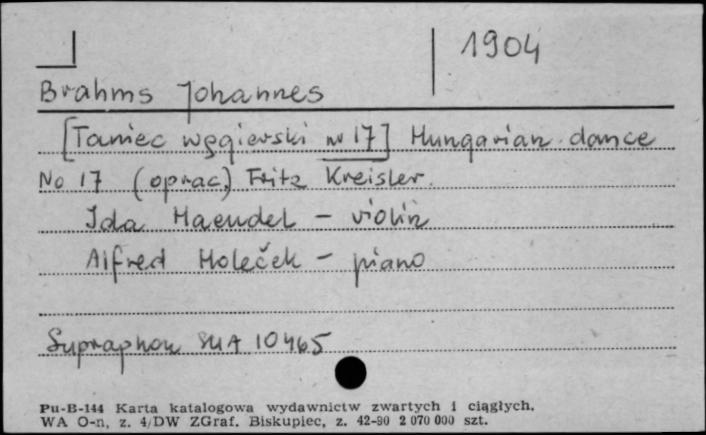 1904
Brahms Johannes
[Taniec węgierski nr 17] Hungarian dance
No 17 (oprac.) Fritz Kreisler.
Ida Haendel - violin
Alfred Holeček - piano
Supraphon SUA 10465
Pu-B-144 Karta katalogowa wydawnictw zwartych i ciągłych.
WA O-n, z. 4/DW ZGraf. Biskupiec, z. 42-90 2 070 000 szt.